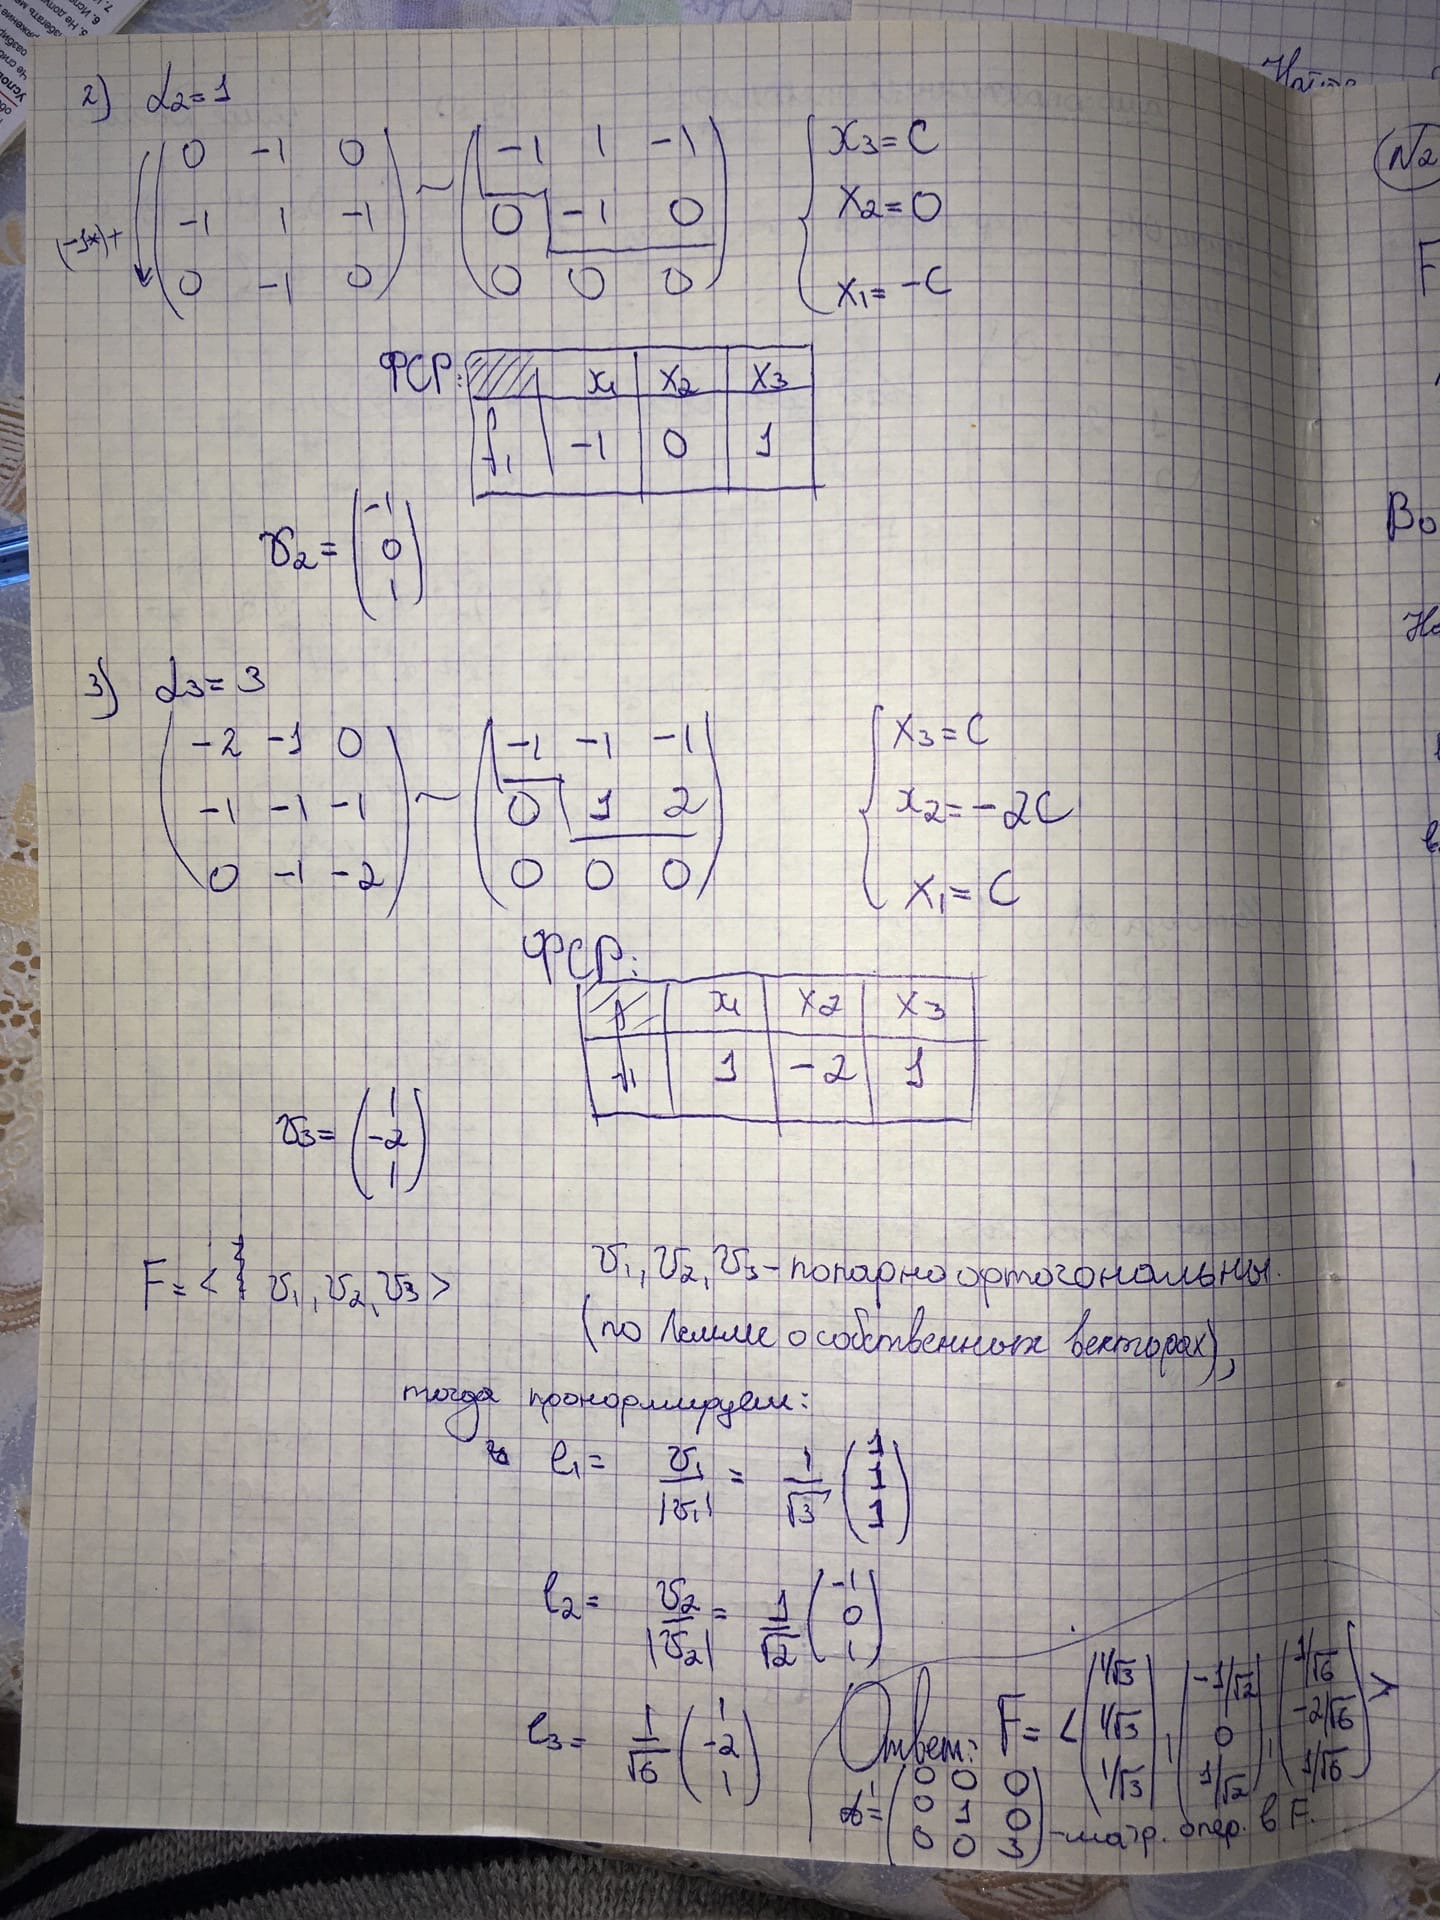 2) α₂=1
(-1*)+ (0 -1 0; -1 1 -1; 0 -1 0) ~ (-1 1 -1; 0 -1 0; 0 0 0) { x₃=C
x₂=0
x₁=-C
ФСР: x₁ x₂ x₃
f₁ -1 0 1
v₂= (-1 0 1)
3) α₃=3
(-2 -1 0; -1 -1 -1; 0 -1 -2) ~ (-1 -1 -1; 0 1 2; 0 0 0) { x₃=C
x₂=-2C
x₁=C
ФСР:
x₁ x₂ x₃
f₁ 1 -2 1
v₃= (1 -2 1)
F=< v₁, v₂, v₃>
v₁, v₂, v₃ - попарно ортогональны.
(по Лемме о собственных векторах),
тогда пронормируем:
e₁= v₁/|v₁| = 1/√3 (1 1 1)
e₂= v₂/|v₂| = 1/√2 (-1 0 1)
e₃= 1/√6 (1 -2 1)
Ответ: F= <(1/√3 1/√3 1/√3), (-1/√2 0 1/√2), (1/√6 -2/√6 1/√6)>
= (0 0 0; 0 1 0; 0 0 3) - матр. опер. в F.
№2
F
Во